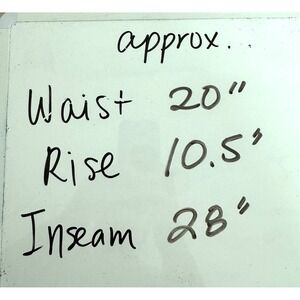 approx..
Waist 20"
Rise 10.5"
Inseam 28"